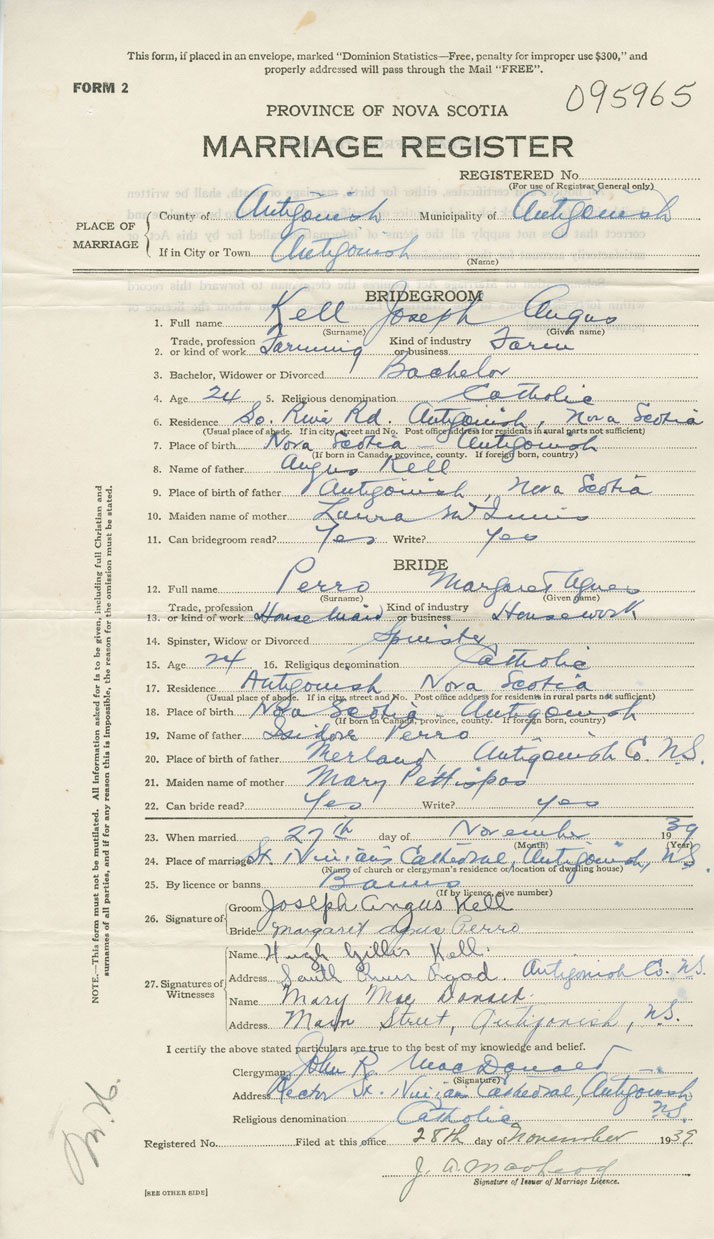 This form, if placed in an envelope, marked "Dominion Statistics—Free, penalty for improper use $300," and
properly addressed will pass through the Mail "FREE".
FORM 2
095965
PROVINCE OF NOVA SCOTIA
MARRIAGE REGISTER
REGISTERED No.
(For use of Registrar General only)
PLACE OF MARRIAGE
County of Antigonish Municipality of Antigonish
If in City or Town Antigonish
(Name)
BRIDEGROOM
1. Full name Kell Joseph Angus
(Surname) (Given name)
2. Trade, profession or kind of work Farming Kind of industry or business Farm
3. Bachelor, Widower or Divorced Bachelor
4. Age 24 5. Religious denomination Catholic
6. Residence So. River Rd. Antigonish, Nova Scotia
(Usual place of abode. If in city, street and No. Post office address for residents in rural parts not sufficient)
7. Place of birth Nova Scotia Antigonish
(If born in Canada, province, county. If foreign born, country)
8. Name of father Angus Kell
9. Place of birth of father Antigonish, Nova Scotia
10. Maiden name of mother Laura McInnis
11. Can bridegroom read? Yes Write? Yes
BRIDE
12. Full name Perro Margaret Agnes
(Surname) (Given name)
13. Trade, profession or kind of work House Maid Kind of industry or business Housework
14. Spinster, Widow or Divorced Spinster
15. Age 24 16. Religious denomination Catholic
17. Residence Antigonish Nova Scotia
(Usual place of abode. If in city, street and No. Post office address for residents in rural parts not sufficient)
18. Place of birth Nova Scotia - Antigonish
(If born in Canada, province, county. If foreign born, country)
19. Name of father Isidore Perro
20. Place of birth of father Merland Antigonish Co. N.S.
21. Maiden name of mother Mary Pettispas
22. Can bride read? Yes Write? Yes
23. When married 27th day of November 1939
(Month) (Year)
24. Place of marriage St. Ninian's Cathedral, Antigonish, N.S.
(Name of church or clergyman's residence or location of dwelling house)
25. By licence or banns Banns
(If by licence, give number)
26. Signature of
Groom Joseph Angus Kell
Bride Margaret Agnes Perro
27. Signatures of Witnesses
Name Hugh Gillis Kell.
Address South River Road. Antigonish Co. N.S.
Name Mary Mac Donald.
Address Main Street, Antigonish, N.S.
I certify the above stated particulars are true to the best of my knowledge and belief.
Clergyman John R. MacDonald
(Signature)
Address Rector St. Ninian's Cathedral, Antigonish N.S.
Religious denomination Catholic
Registered No. Filed at this office 28th day of November 1939
J. A. MacLeod
Signature of Issuer of Marriage Licence.
[SEE OTHER SIDE]
NOTE.—This form must not be mutilated. All information asked for is to be given, including full Christian and
surnames of all parties, and if for any reason this is impossible, the reason for the omission must be stated.